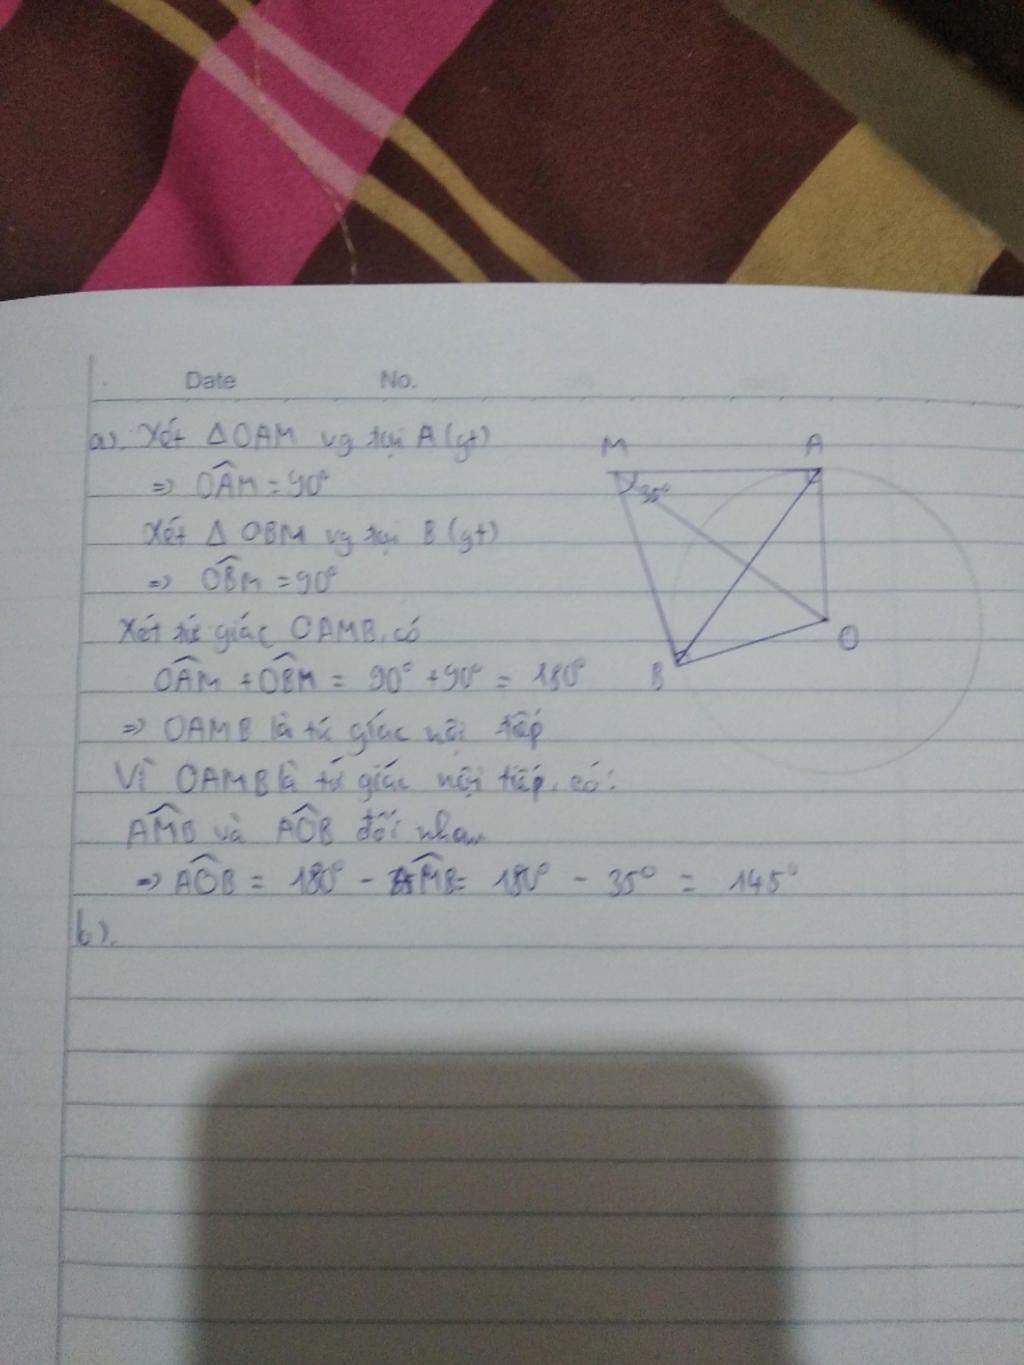 Date No.
a). Xét ΔOAM vg tại A (gt)
=> OÂM = 90°
Xét Δ OBM vg tại B (gt)
=> OB̂M = 90°
Xét tứ giác OAMB, có
OÂM + OB̂M = 90° + 90° = 180°
=> OAMB là tứ giác nội tiếp
Vì OAMB là tứ giác nội tiếp, có:
AM̂B và AÔB đối nhau
=> AÔB = 180° - AM̂B = 180° - 35° = 145°
b).
M A
35°
O
B